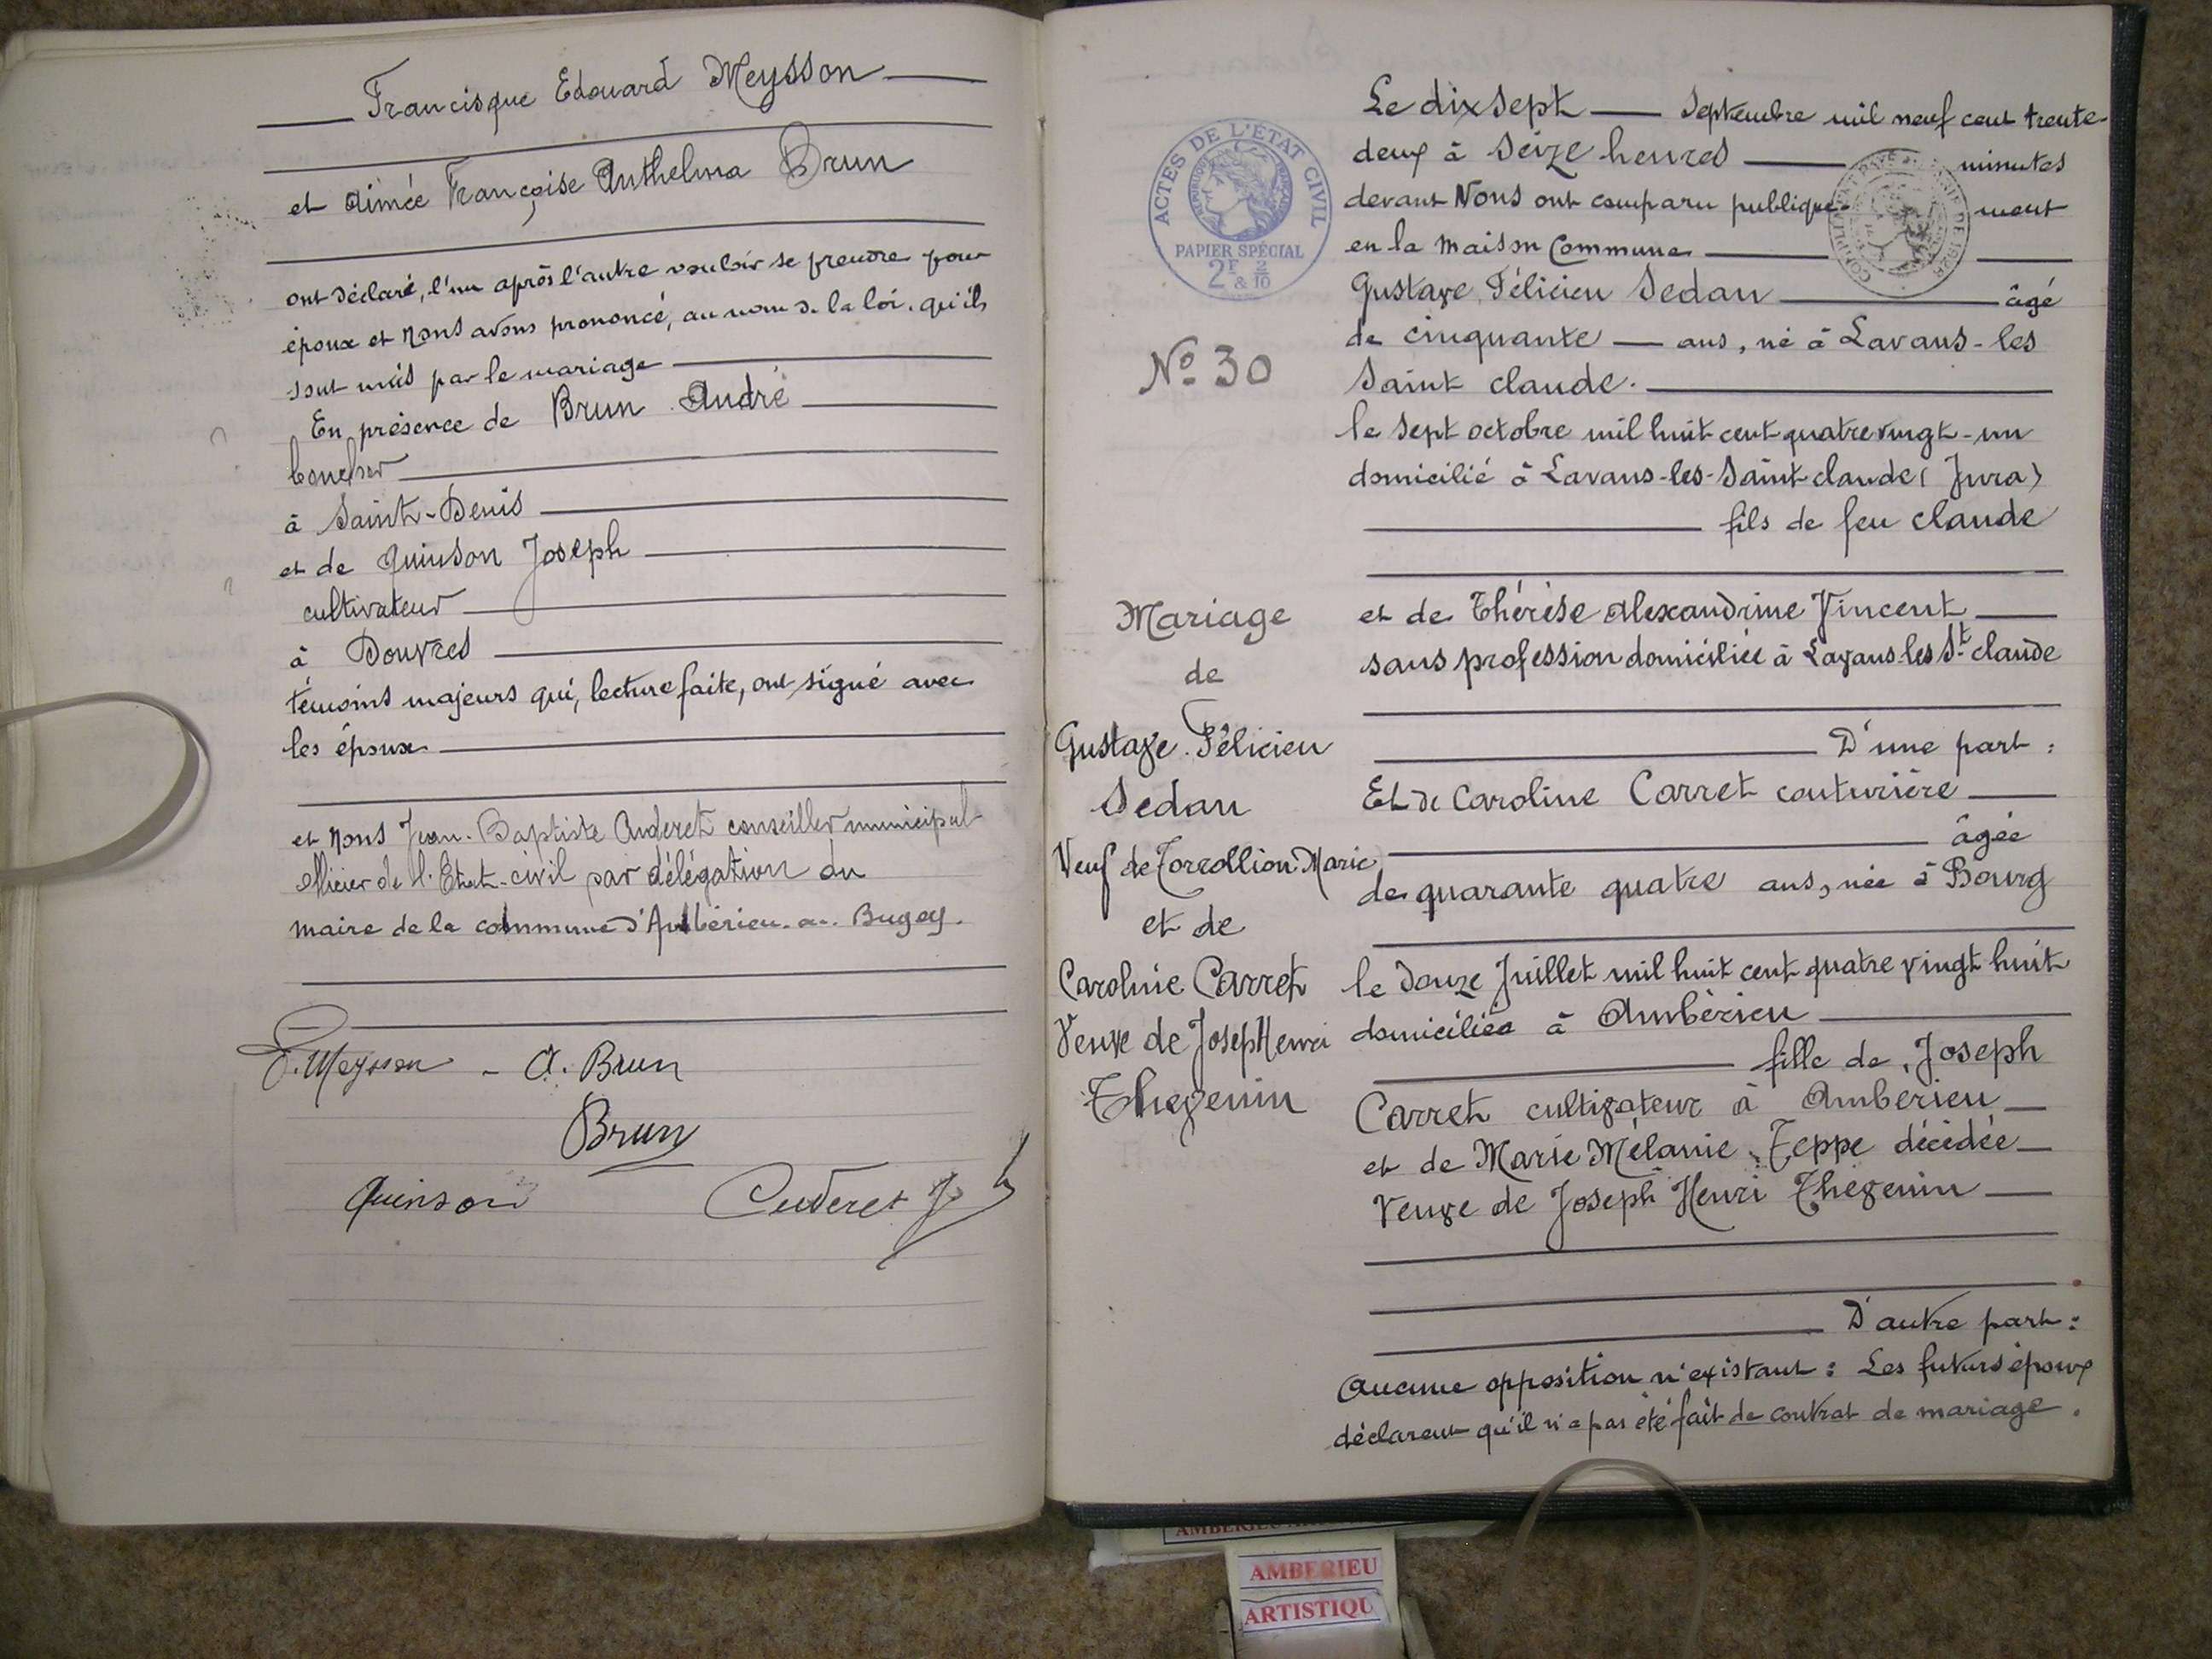 Francisque Edouard Meysson
et Aimée Françoise Anthelma Brun
ont déclaré, l'un après l'autre vouloir se prendre pour
époux et Nous avons prononcé, au nom de la loi, qu'ils
sont unis par le mariage
En présence de Brun André
boucher
à Saint-Denis
et de Quinson Joseph
cultivateur
à Douvres
témoins majeurs qui, lecture faite, ont signé avec
les époux
et Nous Jean-Baptiste Cuderet conseiller municipal
officier de l'Etat-civil par délégation du
maire de la commune d'Ambérieu-en-Bugey.
E. Meysson - A. Brun
Brun
Quinson Cuderet J
ACTES DE L'ÉTAT CIVIL
RÉPUBLIQUE FRANÇAISE
PAPIER SPÉCIAL
2F & 2/10
No 30
Mariage
de
Gustave Félicien
Sedan
Veuf de Marie
et de
Caroline Carret
Veuve de Joseph Henri
Thevenin
Le dix sept Septembre mil neuf cent trente-
deux à Seize heures minutes
devant Nous ont comparu publique- ment
en la Maison Commune
Gustave Félicien Sedan âgé
de cinquante ans, né à Lavans-les
Saint claude.
le sept octobre mil huit cent quatre vingt-un
domicilié à Lavans-les-Saint-claude (Jura)
fils de feu claude
et de Thérèse Alexandrine Vincent
sans profession domiciliée à Lavans-les St claude
D'une part :
Et de Caroline Carret couturière
âgée
de quarante quatre ans, née à Bourg
le douze Juillet mil huit cent quatre vingt huit
domiciliée à Ambérieu
fille de Joseph
Carret cultivateur à Ambérieu
et de Marie Mélanie Teppe décédée
Veuve de Joseph Henri Thevenin
D'autre part :
Aucune opposition n'existant : Les futurs époux
déclarent qu'il n'a pas été fait de contrat de mariage.
AMBERIEU
ARTISTIQU